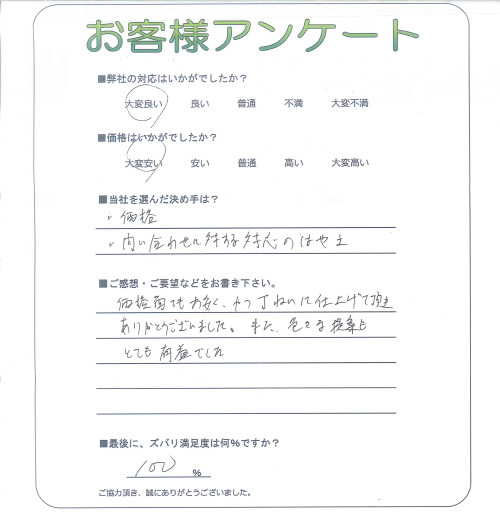 お客様アンケート
■弊社の対応はいかがでしたか?
大変良い 良い 普通 不満 大変不満
■価格はいかがでしたか?
大変安い 安い 普通 高い 大変高い
■当社を選んだ決め手は?
・価格
・問い合わせに対する対応のはやさ
■ご感想・ご要望などをお書き下さい。
価格面でもお安く、かつ丁ねいに仕上げて頂き
ありがとうございました。また、色々な提案も
とても有益でした
■最後に、ズバリ満足度は何%ですか?
100 %
ご協力頂き、誠にありがとうございました。